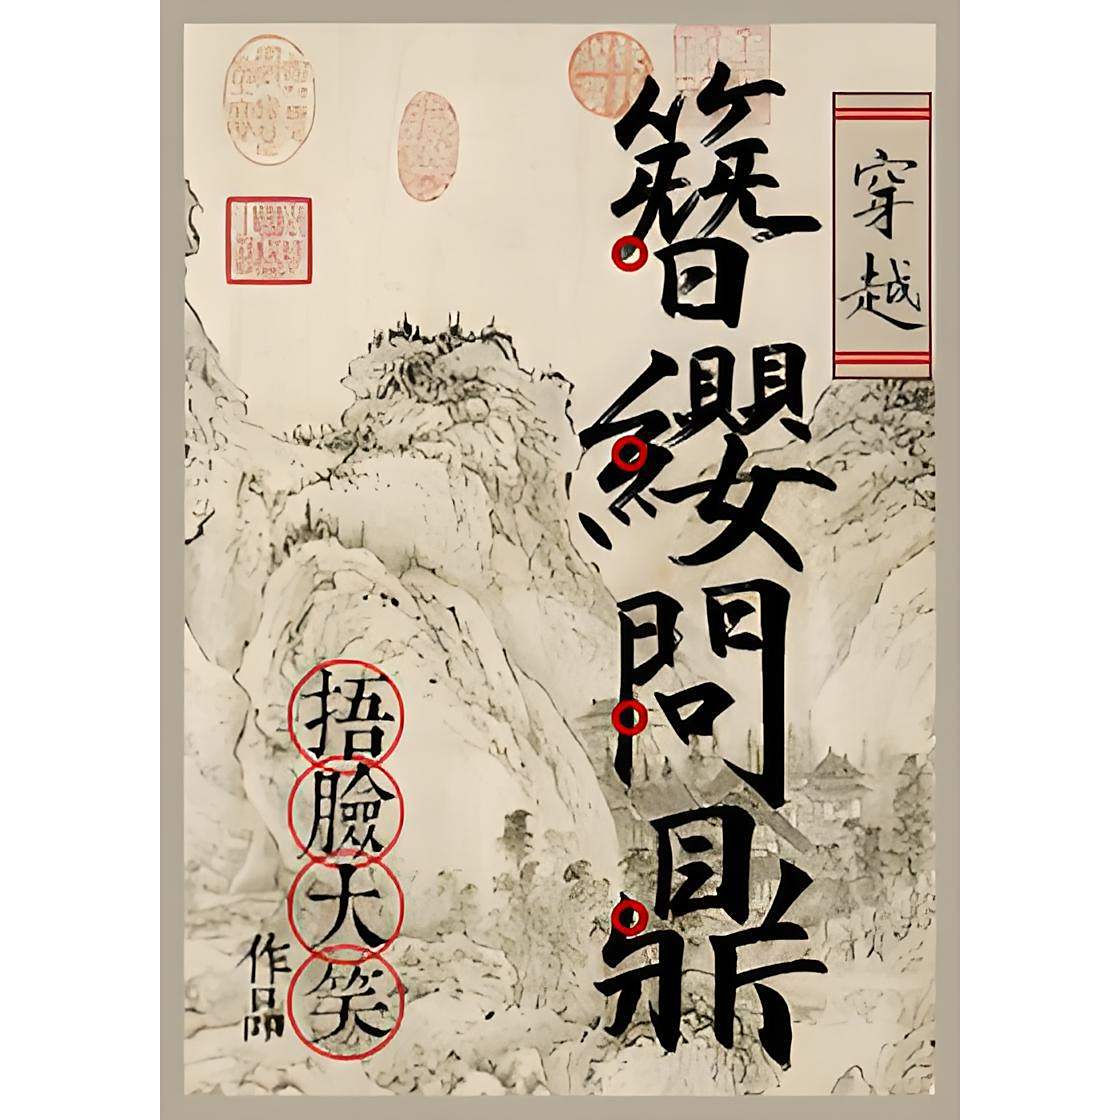 穿越
簪纓問鼎
捂臉大笑
作品